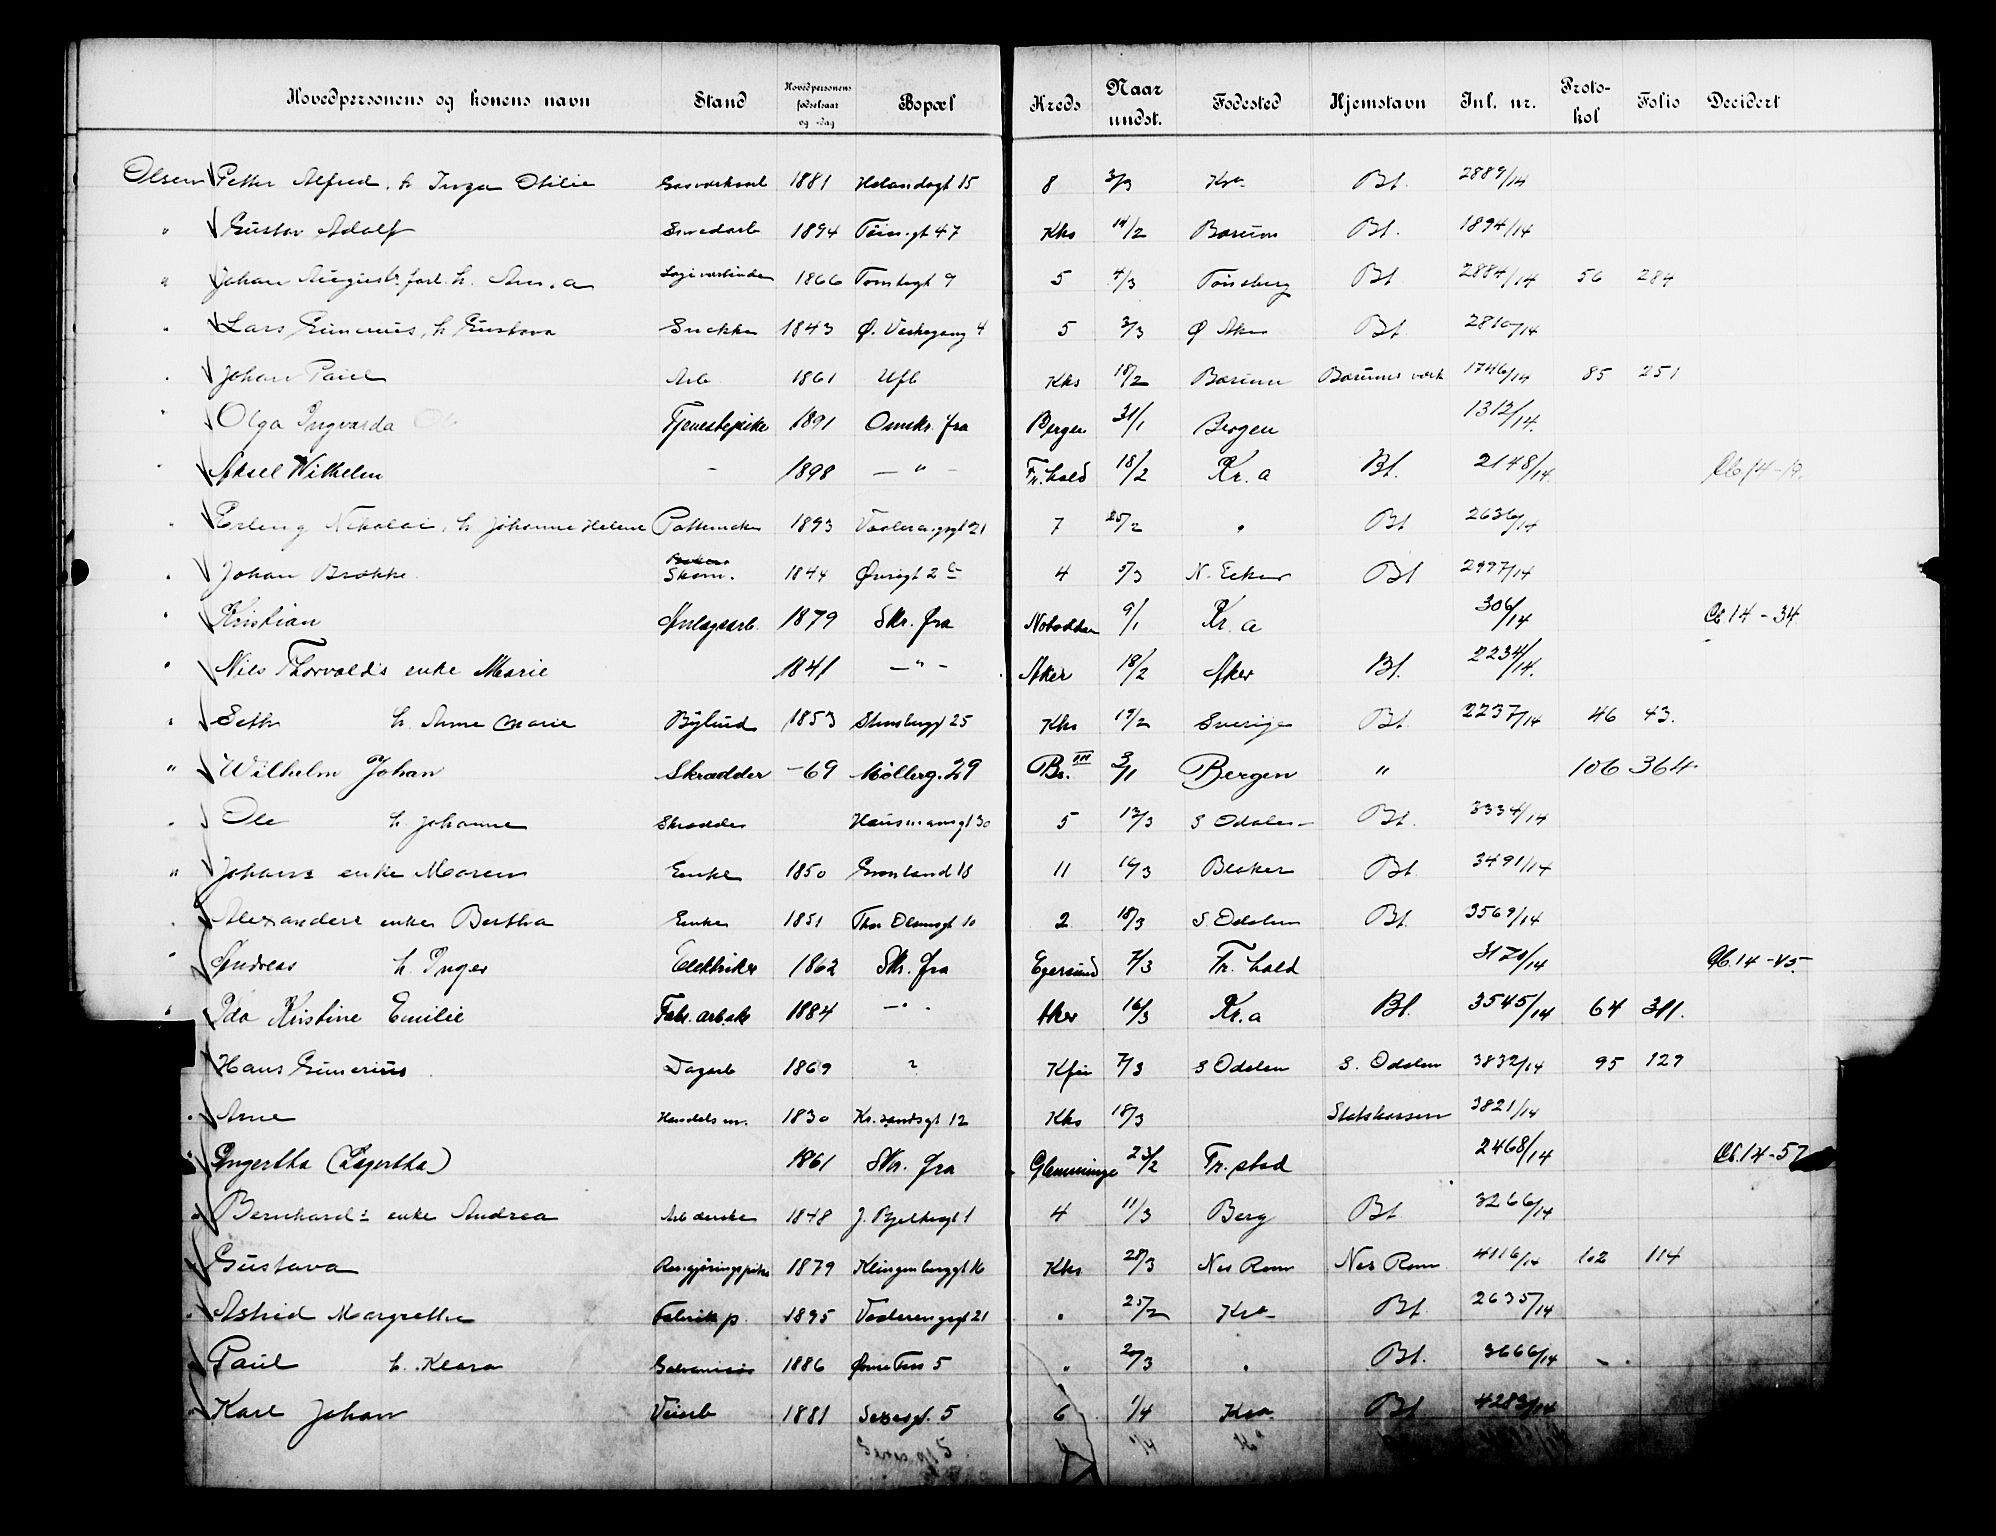 Hovedpersonens og konens navn Stand Hovedpersonens fødselsaar og -dag Bopæl Kreds Naar undst. Fødested Hjemstavn Inl. nr. Proto-kol Folio Decidert
Olsen Petter Alfred, h. Inga Otilie 1881 15 8 3/3 Kra Bt. 2889/14
" Gustav Adolf 1894 Tøiengt 47 Kks 14/2 Bærum Bt. 1894/14
" Johan August, h. Anna 1866 Tomtegt 9 5 4/3 Tønsberg Bt. 2884/14 56 284
" Lars Gunerius, h. Gustava Snekker 1843 Ø. Vaskegang 4 5 3/3 Ø Aker Bt. 2810/14
" Johan Paul Arb. 1861 Ufb Kks 18/2 Bærum Bærums verk 1746/14 85 251
" Olga Ingvarda Tjenestepike 1891 Omskr. fra Bergen 31/1 Bergen 1312/14.
" Aksel Wilhelm - 1898 - " - Fr.hald 18/2 Kr.a Bt. 2148/14.
" Erling Nikolai, h. Johanne Helene 1893 Vaalerengsgt 21 7 25/2 " Bt 2636/14
" Johan Brække Skom. 1844 4 5/3 N. Eker Bt 2997/14
" Kristian Anlægsarb. 1879 Skr. fra Notodden 9/1 Kr.a 306/14 Cb.14-34
" Nils Thorvalds enke Marie 1841 - " - Aker 18/2 Aker Bt. 2234/14.
" Seth h. Anne Marie Bylud 1853 Stensbergt 25 Kks 19/2 Sverige Bt. 2237/14 46 43.
" Wilhelm Johan Skrædder -69 Møllerg. 29 Br. III 3/1 Bergen " 106 364.
" Ole h. Johanne Skrædder Hausmansgt 30 5 13/3 S Odalen Bt. 3334/14
" Johans enke Maren Enke 1850 Grønland 18 11 16/3 Blaker Bt. 3491/14
" Alexanders enke Bertha Enke 1851 Thor Olsensgt 10 2 18/3 S Odalen Bt. 3569/14
" Andreas h. Inger Elektriker 1862 Skr. fra Egersund 7/3 Fr.hald 3170/14 Cb.14-45.
" Ida Kristine Emilie Fabr.arb.ske 1884 - " - Aker 16/3 Kr.a Bt. 3545/14 64 311.
Hans Gunerius Dagarb 1869 ? 7/3 S Odalen S. Odalen 3832/14 95 129
" Arne Handelsm. 1830 Kr.sandsgt 12 Kks 18/3 Statskassen 3821/14
" Ingertha (Lagertha) 1861 Skr. fra Glemminge 23/2 Fr.stad 2468/14 Cb.14-57
" Bernhards enke Andrea 1848 J. Bjelkesgt 1 4 11/3 Berg Bt. 3266/14
" Gustava Rengjøringspike 1879 Klingenberggt 16 Kks 28/3 Nes Rom Nes Rom 4116/14 102 114
" Astrid Margrethe Fabrikp. 1895 Vaalerengsgt 21 " 25/2 Kra Bt. 2635/14
" Paul h. Klara Galvanisør 1886 Øvre Foss 5 " 20/3 " Bt. 3666/14
" Karl Johan Veiarb 1881 5 6 1/4 Kra Bt 4283/14